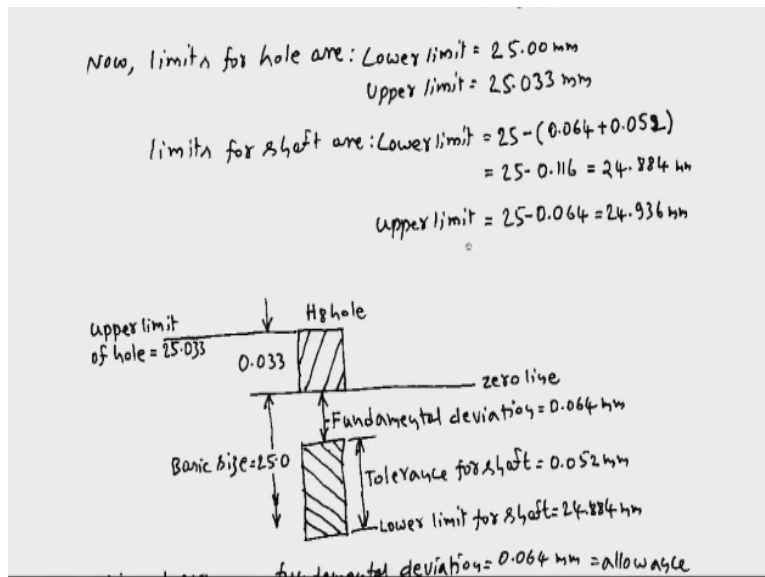 Now, limits for hole are: Lower limit = 25.00 mm
Upper limit = 25.033 mm
limits for shaft are: Lower limit = 25-(0.064+0.052)
= 25-0.116 = 24.884 mm
Upper limit = 25-0.064 = 24.936 mm
H8 hole
upper limit
of hole = 25.033
0.033
zero line
Fundamental deviation = 0.064 mm
Basic size = 25.0
Tolerance for shaft = 0.052 mm
Lower limit for shaft = 24.884 mm
fundamental deviation = 0.064 mm = allowance